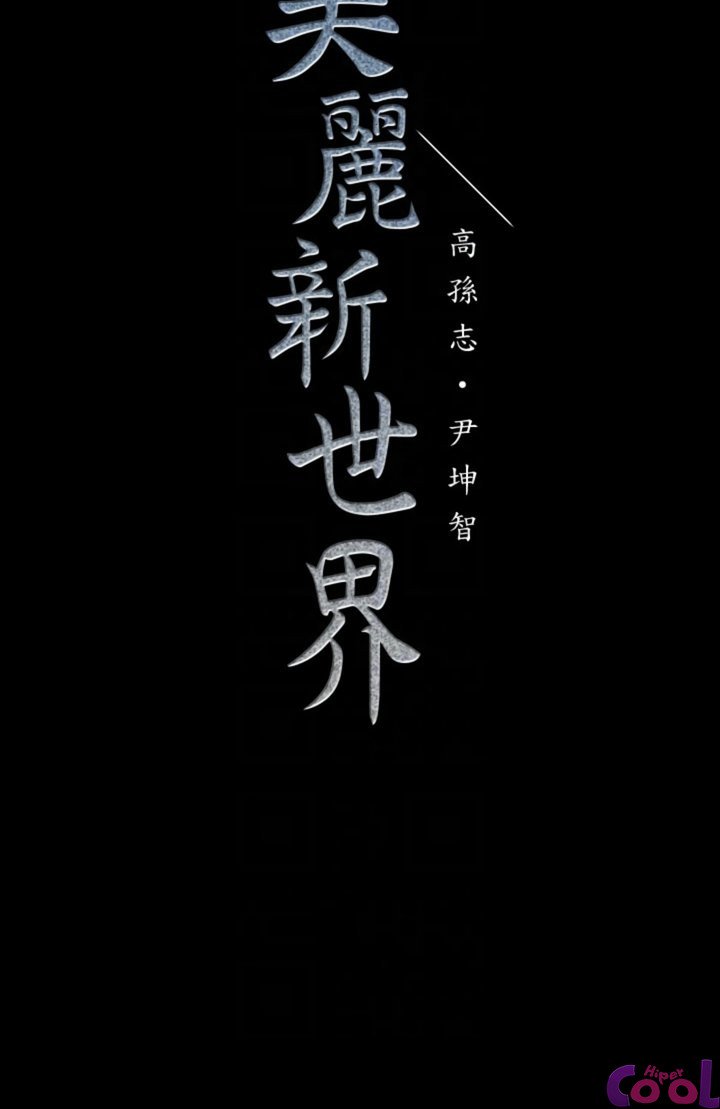 美麗新世界
高孫志・尹坤智
Hiper
COOL